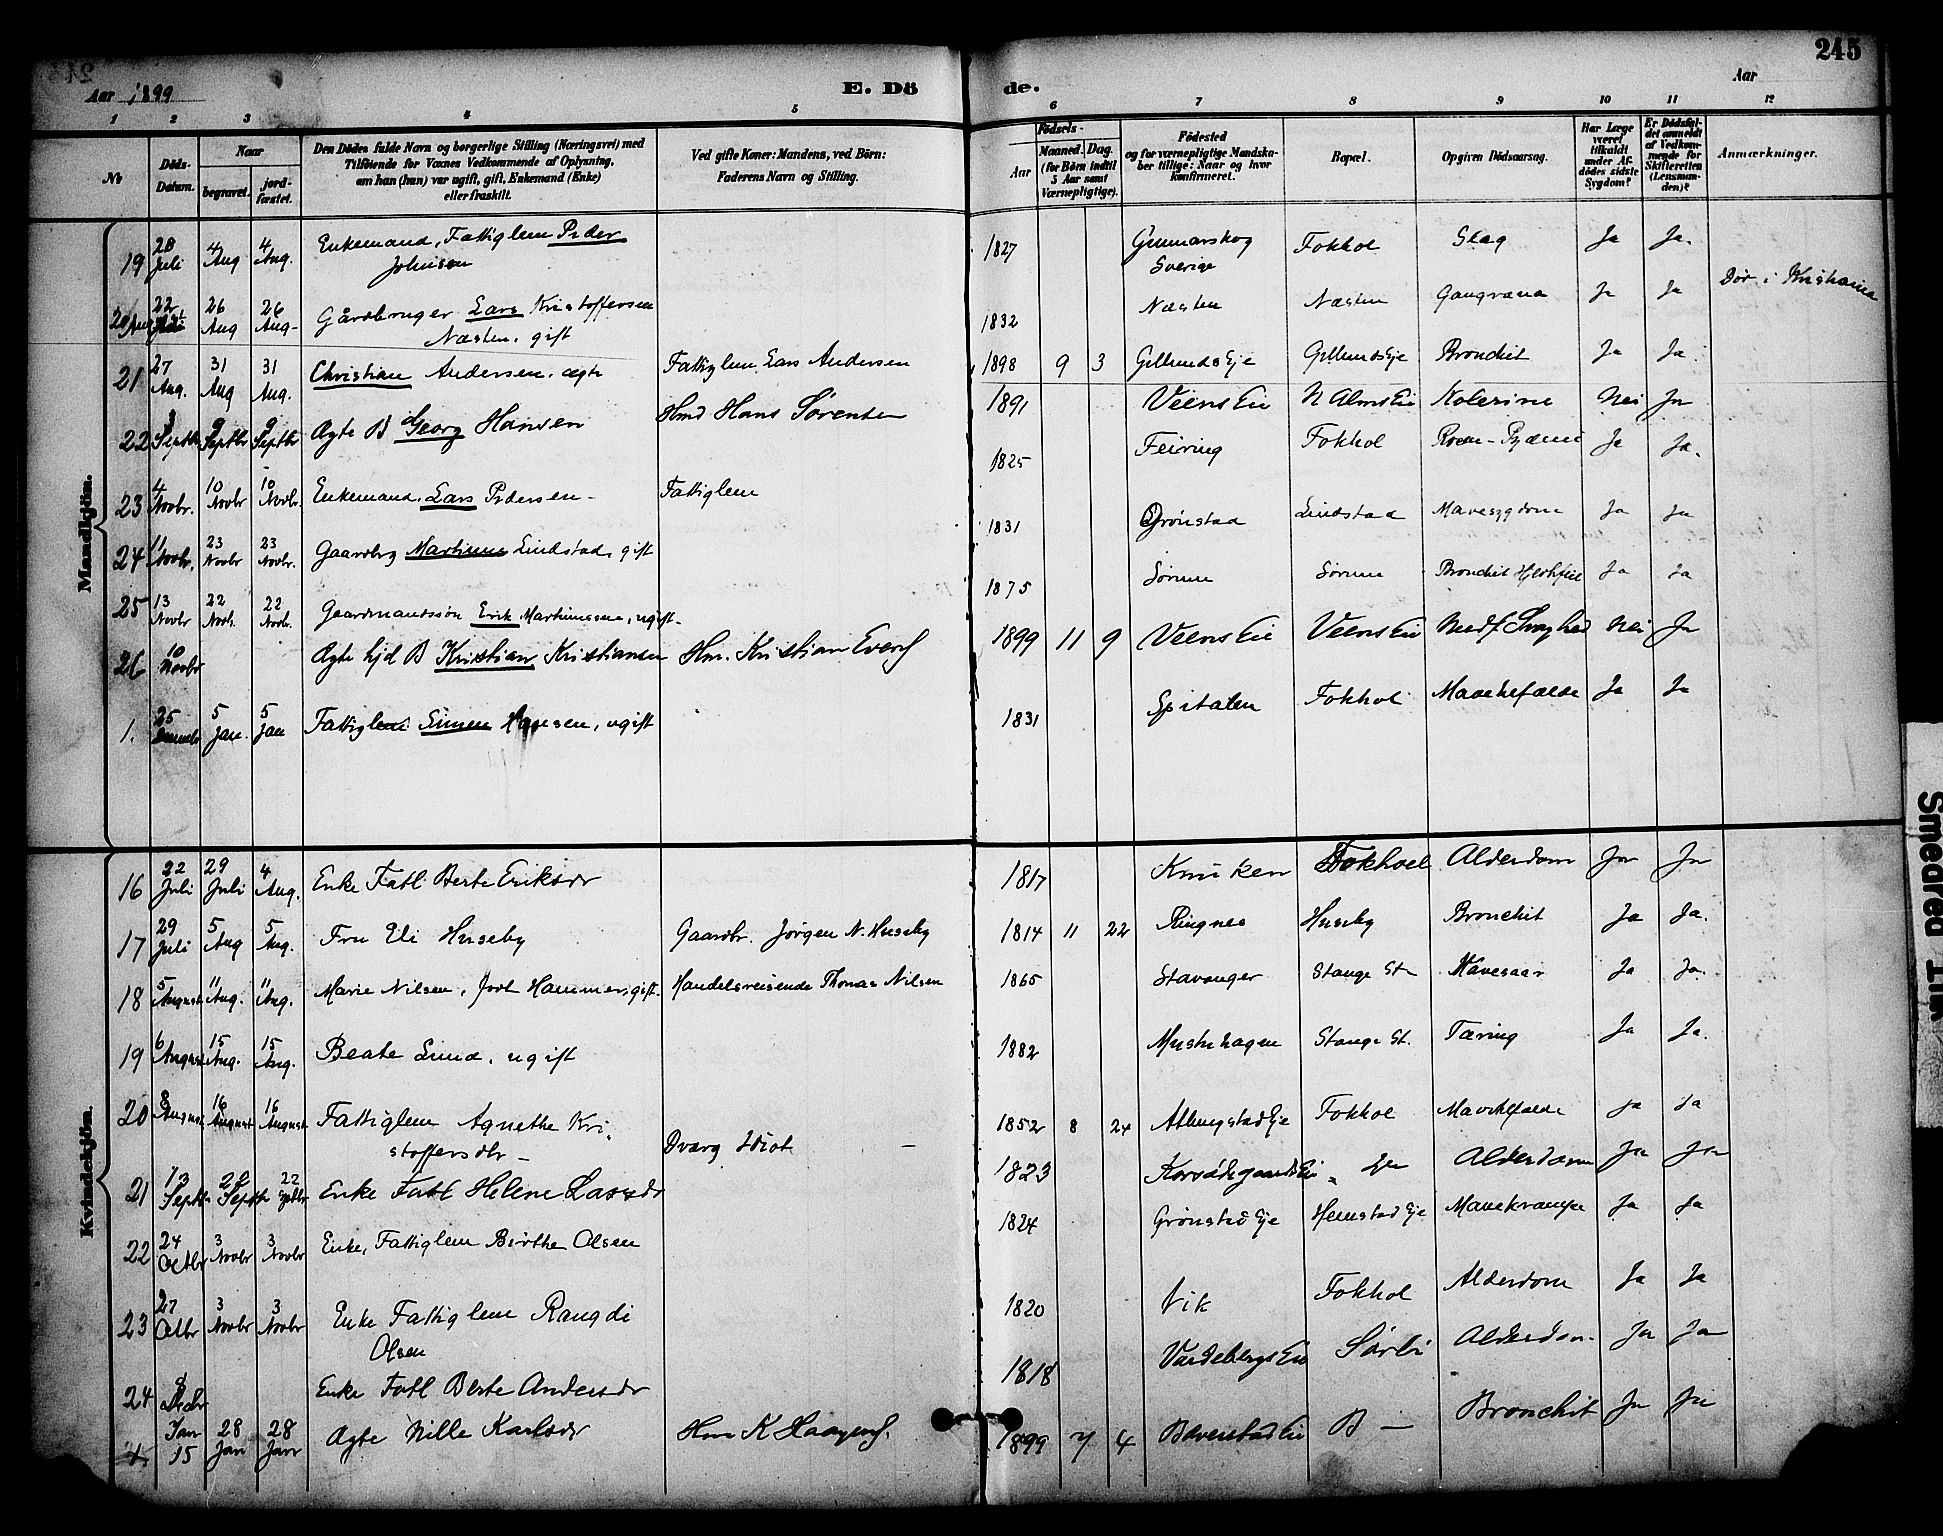 245
Aar 1899
E. Dö
de.
Aar
1 2 3 4 5 6 7 8 9 10 11 12
№
Döds-Datum.
Naar
begravet.
jord-fæstet.
Den Dödes fulde Navn og borgerlige Stilling (Næringsvei) med
Tilföiende for Voxnes Vedkommende af Oplysning,
om han (hun) var ugift, gift, Enkemand (Enke)
eller fraskilt.
Ved gifte Koner: Mandens, ved Börn:
Faderens Navn og Stilling.
Födsels-
Aar
Maaned. Dag.
(for Börn indtil
5 Aar samt
Værnepligtige).
Födested
og for værnepligtige Mandska-
ber tillige: Naar og hvor
konfirmeret.
Bopæl.
Opgiven Dödsaarsag.
Har Læge
været
tilkaldt
under Af-
dödes sidste
Sygdom?
Er Dödsfal-
det anmeldt
af Vedkom-
mende for
Skifteretten
(Lensman-
den)?
Anmærkninger.
Mandkjön.
19 28 Juli 4 Aug 4 Aug. Enkemand, Fattiglem Peder Johnsen 1827 Gunnarskog Sverige Fokhol Slag Ja Ja.
20 22 Aug 26 Aug 26 Aug- Gårdbruger Lars Kristoffersen Næsten, gift 1832 Næsten Næsten Gangræna Ja Ja Dør i Kristiania
21 27 Aug. 31 Aug 31 Aug. Christian Andersen, ægte Fattiglem Lars Andersen 1898 9 3 Gillunds Eje Gillunds Eje Bronchit Ja Ja.
22 3 Septbr 9 Septbr 9 Septbr Ægte B Georg Hansen Hmd Hans Sørensen 1891 Veens Eie N Alms Eie Kolerine Nei Ja
23 4 Novbr. 10 Novbr 10 Novbr. Enkemand, Lars Pedersen - Fattiglem 1825 Feiring Fokhol Ja Ja.
24 11 Novbr. 23 Novbr 23 Novbr. Gaardbrg Martinus Lindstad, gift 1831 Grönstad Lindstad Mavesygdom Ja Ja
25 13 Novbr 22 Novb. 22 Novb. Gaardmandssøn Erik Martinussen, ugift. 1875 Sörum Sörum Bronchit Hjertefeil Ja Ja
26 10 Novbr Ægte hjd B Kristian Kristiansen Hm. Kristian Evens 1899 11 9 Veens Eie Veens Eie Medf. Svaghed Nei Ja
1. 25 5 Jan. 5 Jan Fattiglem Simen Hansen, ugift 1831 Spitalen Fokhol Mavetilfælde Ja Ja
Kvindekjön.
16 22 Juli 29 Juli 4 Aug. Enke Fatl Berte Eriksdr 1817 Knuken Fokhoel Alderdom Ja Ja
17 29 Juli 5 Aug 5 Aug. Fru Eli Huseby Gaardbr. Jørgen N. Huseby 1814 11 22 Ringnes Huseby Bronchit Ja Ja.
18 5 August 11 Aug. 11 Aug. Marie Nilsen, født Hammer, gift. Handelsreisende Thomas Nilsen 1865 Stavanger Stange St. Mavesaar Ja Ja.
19 6 August 15 Aug. 15 Aug. Beate Lund, ugift 1882 Stange St. Tæring Ja Ja.
20 8 August 16 August 16 August Fattiglem Agnethe Kri-
stoffersdtr - Dværg Idiot - 1852 8 24 Fokhol Mavetilfælde Ja Ja
21 13 Septbr 22 Septbr 22 Septbr Enke Fatl Helene Larsdr 1823 Korsødegaards Eie Alderdom Ja Ja
22 24 Octbr 3 Novbr 3 Novbr Enke, Fattiglem Birthe Olsen 1824 Grönstad Eje Hemstad Eje Mavekrampe Ja Ja
23 27 Octbr 3 Novbr 3 Novbr Enke Fattiglem Rangdi
Olsen 1820 Vik Fokhol Alderdom Ja Ja
24 8 Decbr Enke Fatl Berte Andersdr 1818 Vardebergs Eie Sörbi Alderdom Ja Ja
1 Jan 15 28 Jan 28 Jan Ægte Nille Karlsdr Hm K Haagens. 1899 7 4 Baverstad Eie B - Bronchit Ja Ja
Smeared Ink